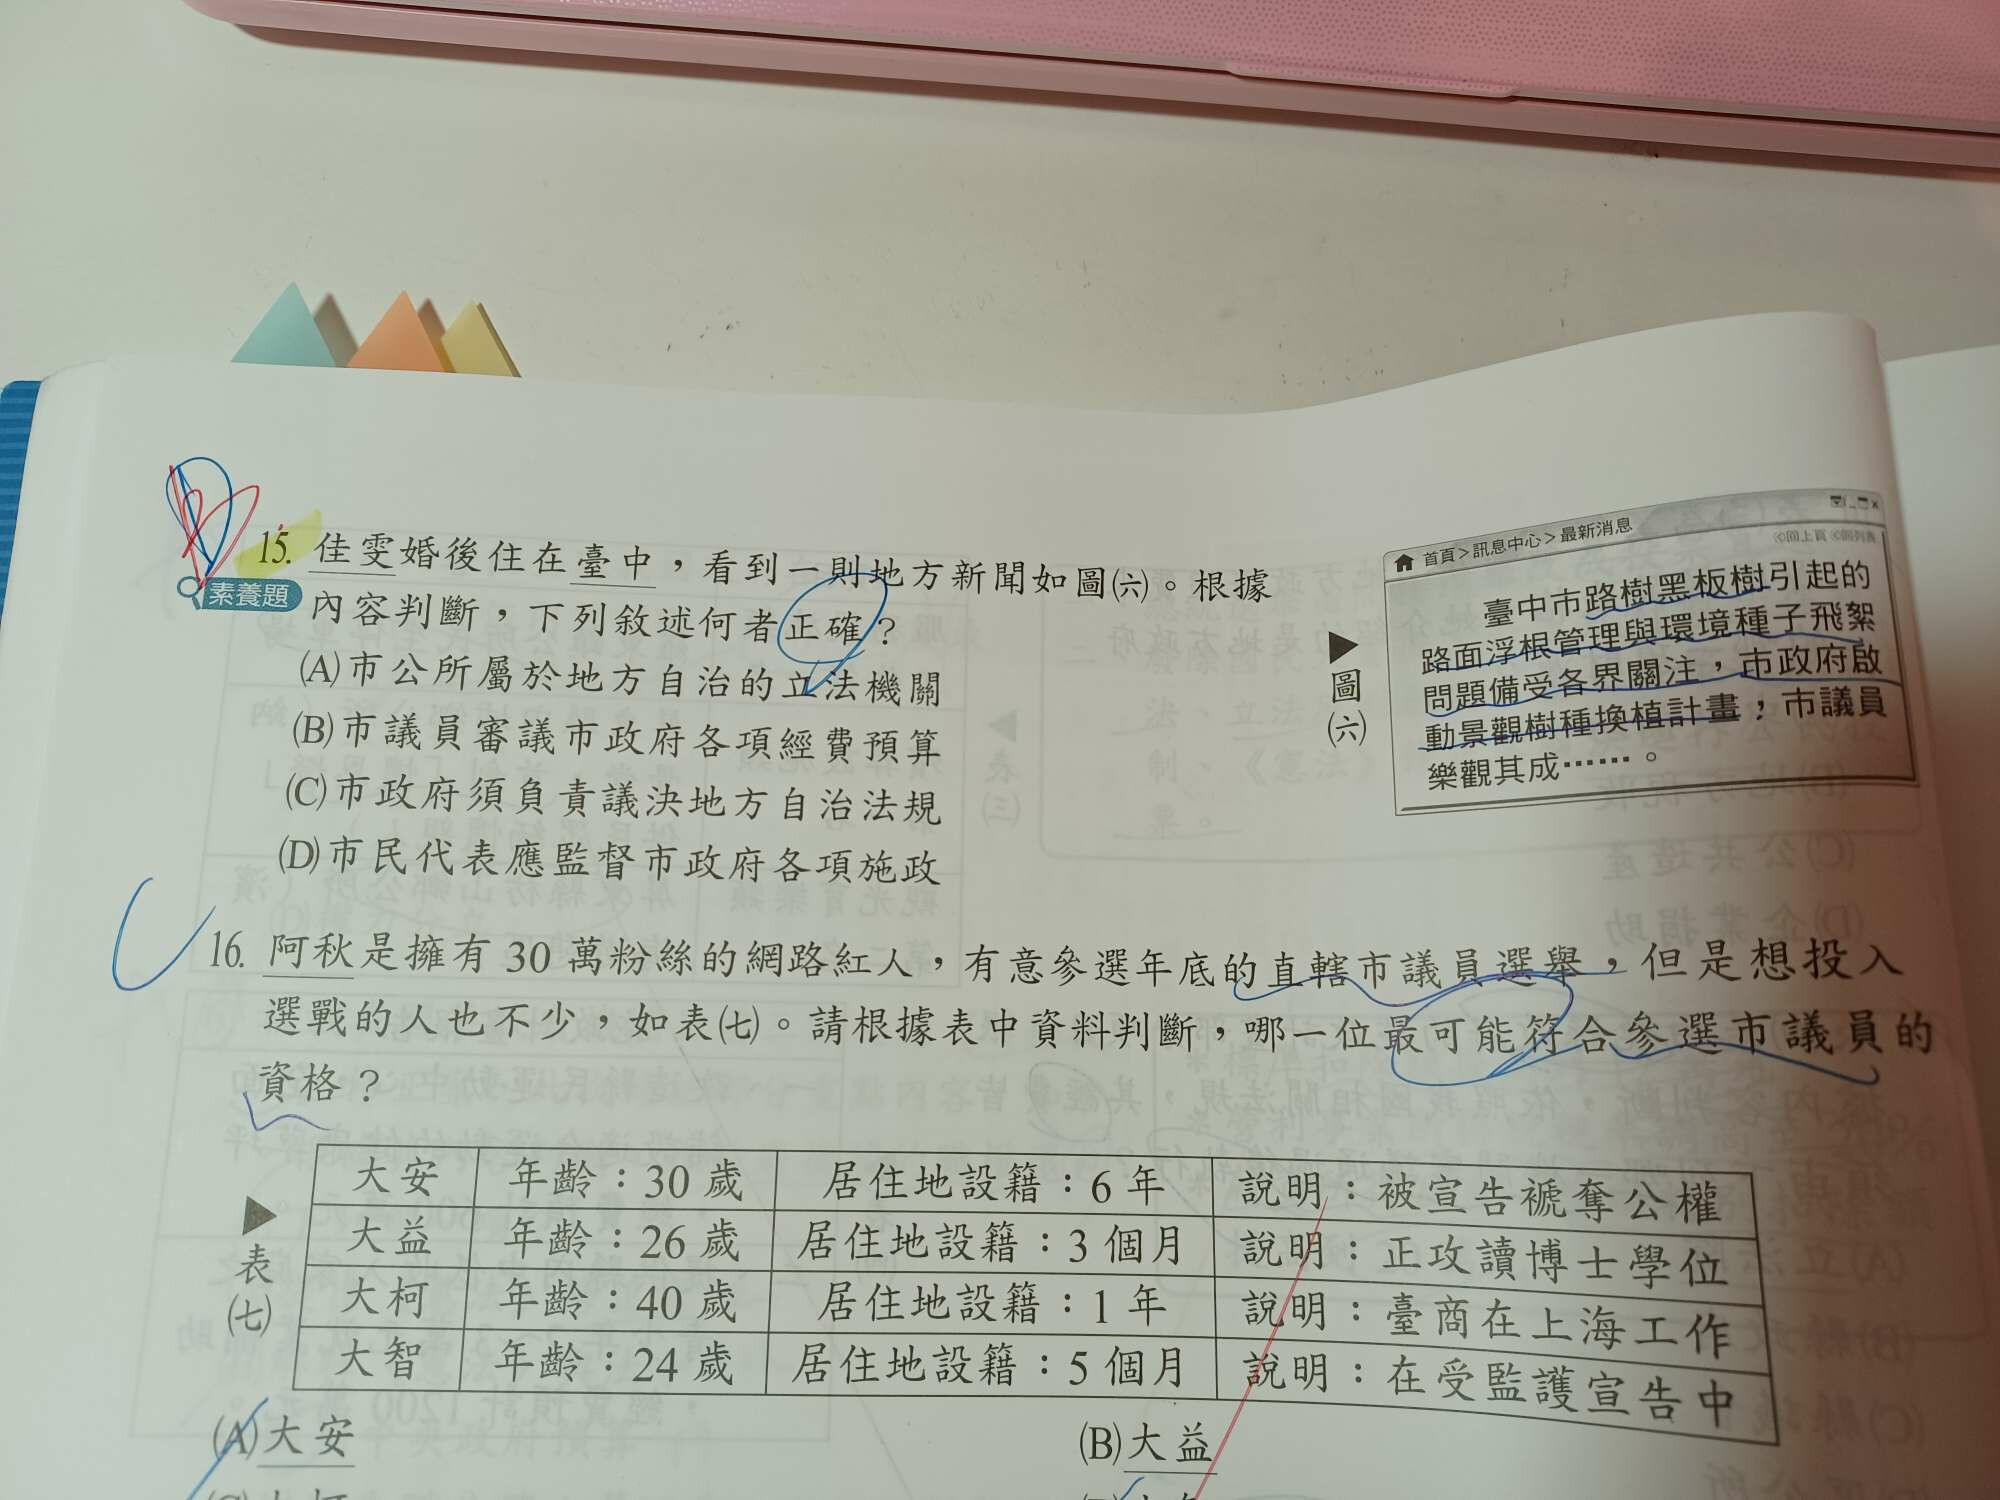 15. 佳雯婚後住在臺中，看到一則地方新聞如圖㈥。根據
素養題
內容判斷，下列敘述何者正確？
(A)市公所屬於地方自治的立法機關
(B)市議員審議市政府各項經費預算
(C)市政府須負責議決地方自治法規
(D)市民代表應監督市政府各項施政
▶圖㈥
首頁>訊息中心>最新消息
回上頁 回列表
臺中市路樹黑板樹引起的
路面浮根管理與環境種子飛絮
問題備受各界關注，市政府啟
動景觀樹種換植計畫，市議員
樂觀其成……。
16. 阿秋是擁有 30 萬粉絲的網路紅人，有意參選年底的直轄市議員選舉，但是想投入
選戰的人也不少，如表㈦。請根據表中資料判斷，哪一位最可能符合參選市議員的
資格？
▶表㈦
大安 年齡：30 歲 居住地設籍：6 年 說明：被宣告褫奪公權
大益 年齡：26 歲 居住地設籍：3 個月 說明：正攻讀博士學位
大柯 年齡：40 歲 居住地設籍：1 年 說明：臺商在上海工作
大智 年齡：24 歲 居住地設籍：5 個月 說明：在受監護宣告中
(A)大安 (B)大益